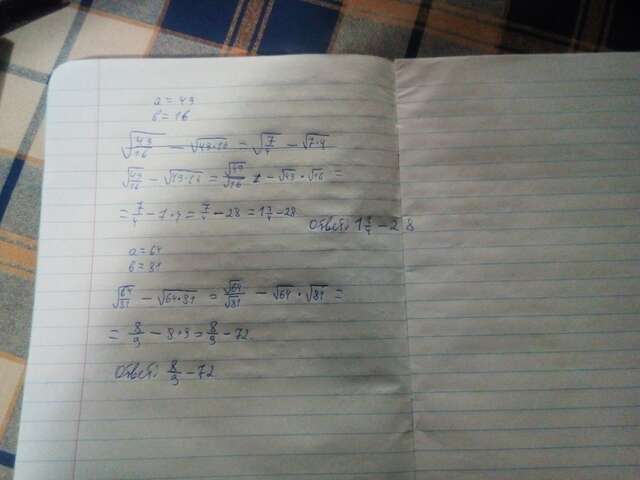 a = 49
b = 16
√49/16 − √49·16 = √7/4 − √7·4
√49/16 − √49·16 = √49/√16 − √49 · √16 =
= 7/4 − 7·4 = 7/4 − 28 = 1 3/4 − 28
Ответ: 1 3/4 − 28
a = 64
b = 81
√64/81 − √64·81 = √64/√81 − √64 · √81 =
= 8/9 − 8·9 = 8/9 − 72.
Ответ: 8/9 − 72